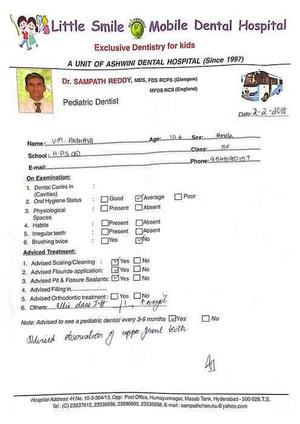 Little Smile Mobile Dental Hospital
Exclusive Dentistry for kids
A UNIT OF ASHWINI DENTAL HOSPITAL (Since 1997)
Dr. SAMPATH REDDY, MDS, FDS RCPS (Glasgow)
MFDS RCS (England)
Pediatric Dentist
Date: 2-2-2018
Name: V.M. Age: 10+ Sex: Female
School: H.P.S (B) Class:
E-mail: Phone:
On Examination:
1. Dental Caries in (Cavities) :
2. Oral Hygiene Status : Good Average Poor
3. Physiological Spaces : Present Absent
4. Habits : Present Absent
5. Irregular teeth : Present Absent
6. Brushing twice : Yes No
Adviced Treatment:
1. Advised Scaling/Cleaning : Yes No
2. Advised Flouride application: Yes No
3. Advised Pit & Fissure Sealants: Yes No
4. Advised Filling in
5. Advised Orthodontic treatment : Yes No
6. Others:
Note: Advised to see a pediatric dentist every 3-6 months Yes No
Advised observation of upper front teeth
Hospital Address -H.No. 10-3-304/13, Opp: Post Office, Humayunnagar, Masab Tank, Hyderabad - 500 028.T.S.
Tel: (C) 23537612, 23535656, 23590690, 23535358, E-mail : sampathcheruku@yahoo.com